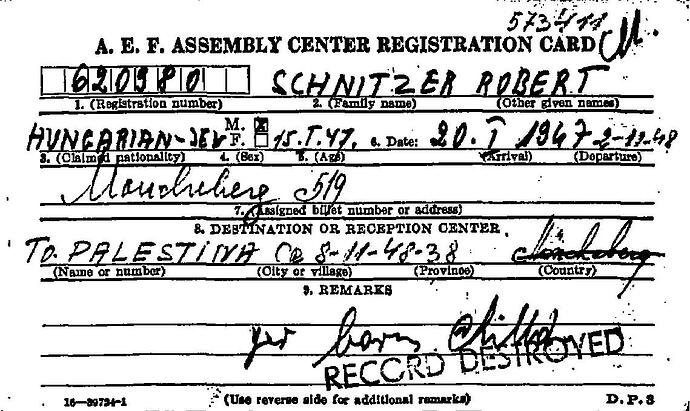 573411 M.
A. E. F. ASSEMBLY CENTER REGISTRATION CARD
620980 SCHNITZER ROBERT
1. (Registration number) 2. (Family name) (Other given names)
HUNGARIAN-JEW M. F. 15.I.47. 6. Date: 20. I 1947 2-11-48
3. (Claimed nationality) 4. (Sex) 5. (Age) (Arrival) (Departure)
Moncheberg 519
7. (Assigned billet number or address)
8. DESTINATION OR RECEPTION CENTER.
TO PALESTINA 8-11-48-38
(Name or number) (City or village) (Province) (Country)
9. REMARKS
born Child
RECORD DESTROYED
16—39724-1 (Use reverse side for additional remarks) D. P. 3